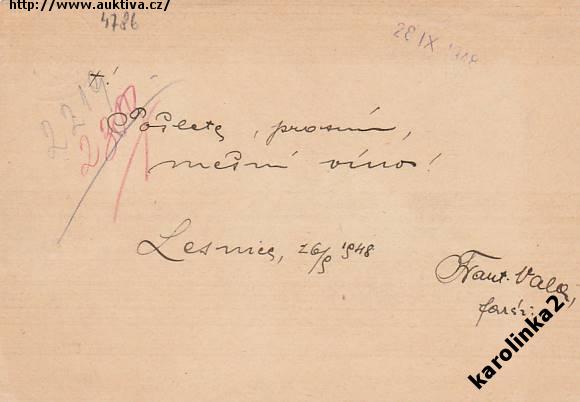 http://www.auktiva.cz/
4786
28 IX 1948
+!
2219
Pošlete, prosím,
mešní víno!
Lesnice, 26/9 1948
Frant. Vala,
farář.
karolinka2